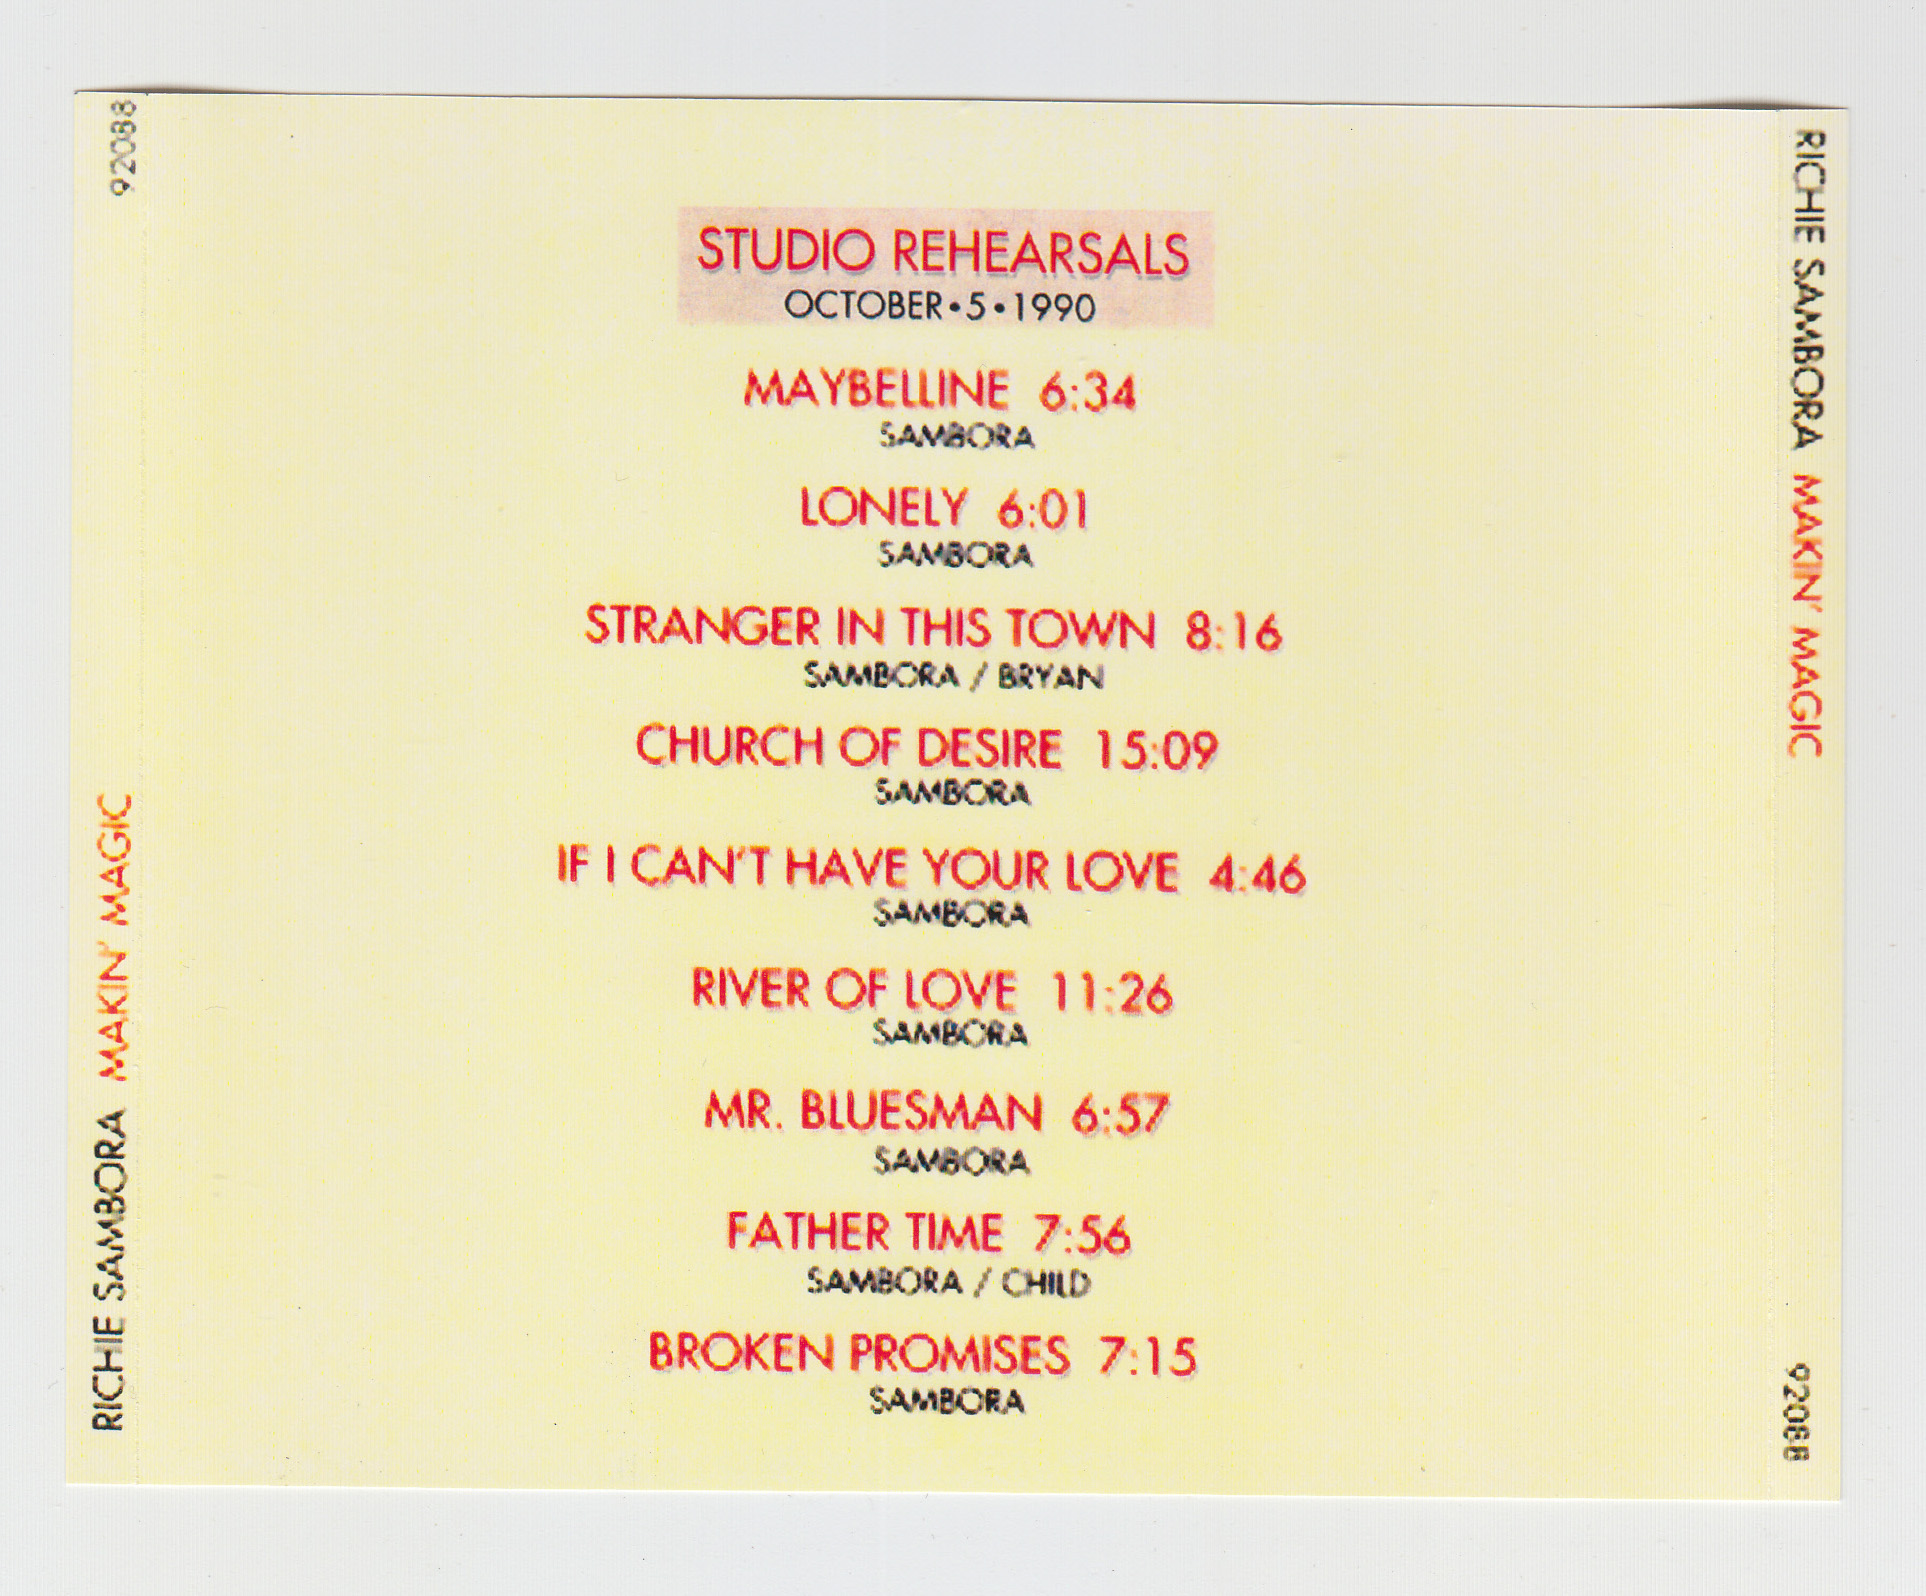 92088
RICHIE SAMBORA MAKIN' MAGIC
STUDIO REHEARSALS
OCTOBER•5•1990
MAYBELLINE 6:34
SAMBORA
LONELY 6:01
SAMBORA
STRANGER IN THIS TOWN 8:16
SAMBORA / BRYAN
CHURCH OF DESIRE 15:09
SAMBORA
IF I CAN'T HAVE YOUR LOVE 4:46
SAMBORA
RIVER OF LOVE 11:26
SAMBORA
MR. BLUESMAN 6:57
SAMBORA
FATHER TIME 7:56
SAMBORA / CHILD
BROKEN PROMISES 7:15
SAMBORA
RICHIE SAMBORA MAKIN' MAGIC
92088